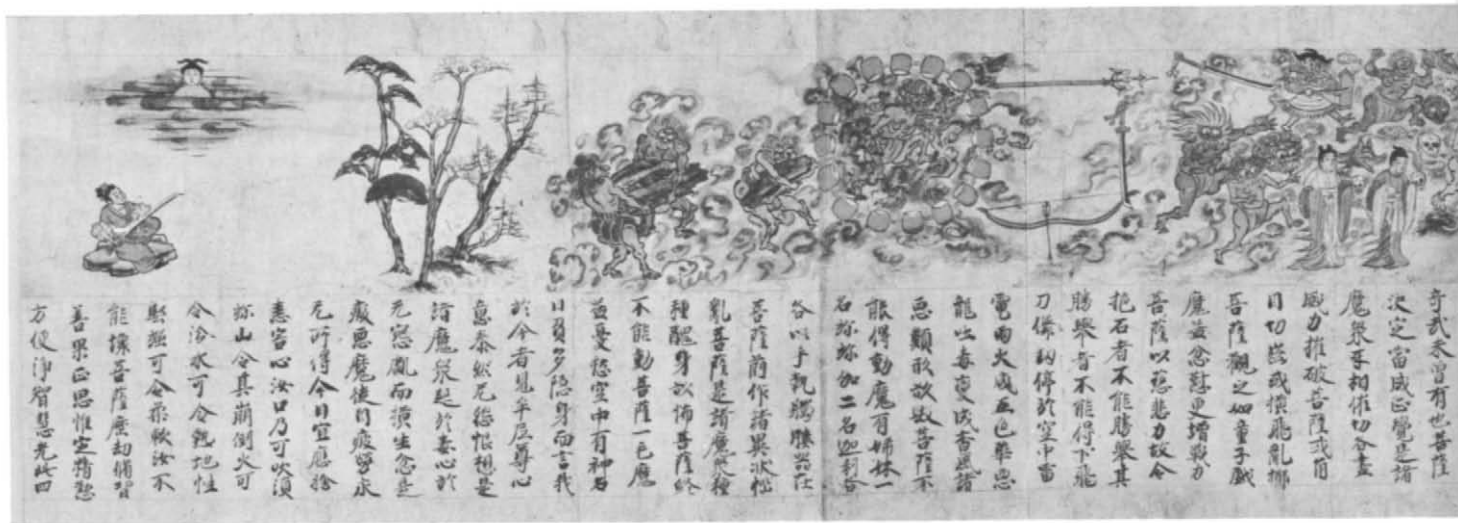 奇哉未曾有也菩薩
決定當成正覺是諸
魔衆互相催切各盡
威力摧破菩薩或角
目切齒或横飛亂擲
菩薩觀之如童子戲
魔益忿懟更增戰力
菩薩以慈悲力故令
抱石者不能勝舉其
勝舉者不能得下飛
刀儛釰停於空中雷
電雨火成五色華惡
龍吐毒變成香風諸
惡類形欲毀菩薩不
能得動魔有姊妹一
名弥伽二名迦利各
各以手執髑髏器在
菩薩前作諸異狀惱
亂菩薩是諸魔衆種
種醜身欲怖菩薩終
不能動菩薩一毛魔
益憂愁空中有神名
曰負多隱身而言我
於今者見牟尼尊心
意泰然无怨恨想是
諸魔衆起於毒心於
无怨處而横生忿是
癡惡魔徒自疲勞永
无所得今日宜應捨
恚害心汝口乃可吹須
弥山令其崩倒火可
令冷水可令熱地性
堅強可令柔軟汝不
能壞菩薩歷劫修習
善果正思惟定精懃
方便淨智慧光此四